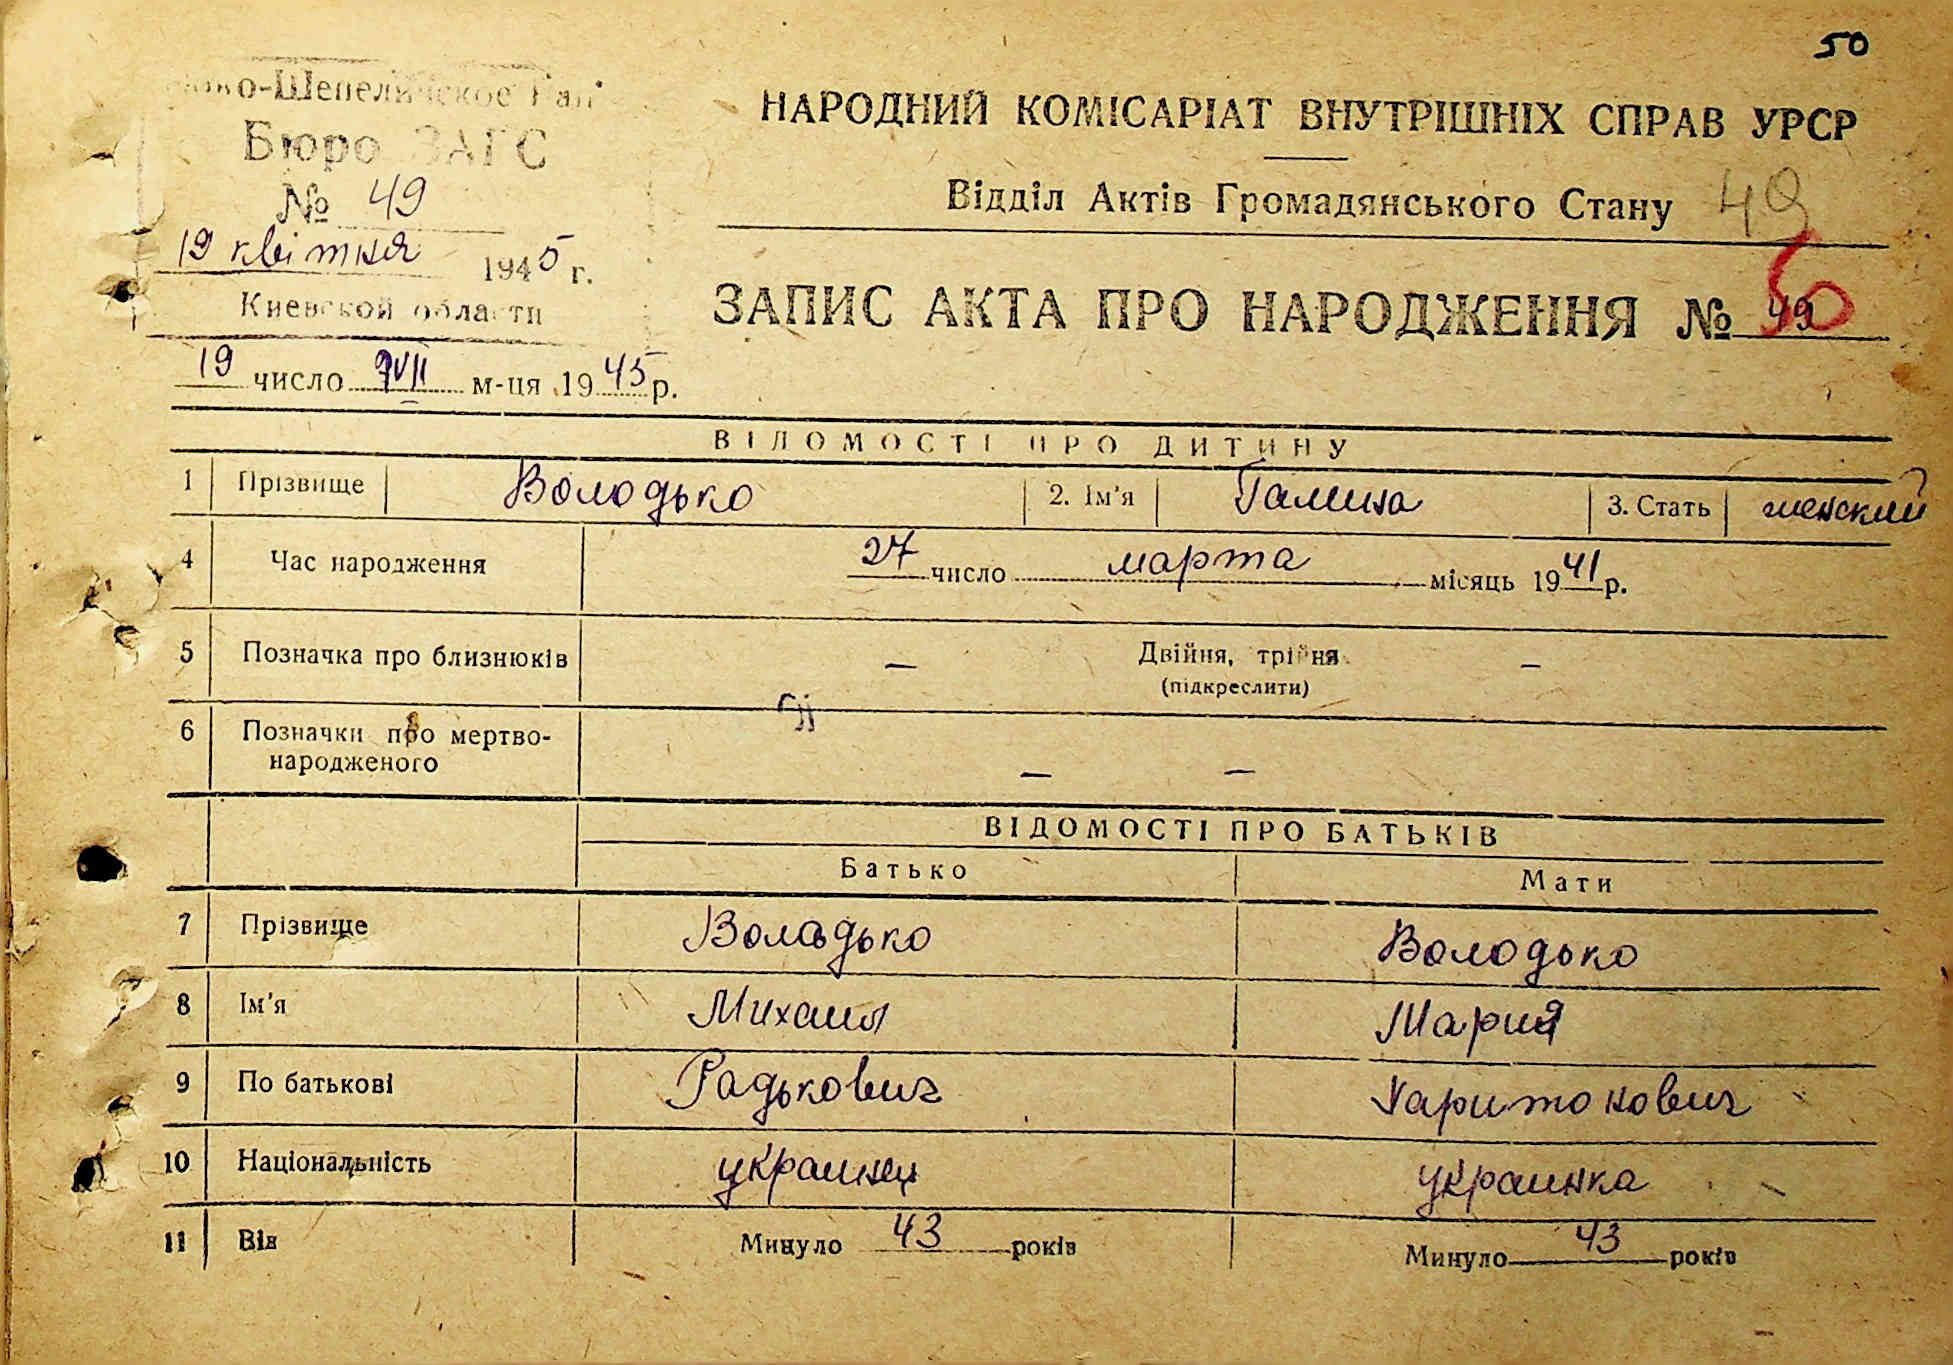 50
-Шепеличское Рай
НАРОДНИЙ КОМІСАРІАТ ВНУТРІШНІХ СПРАВ УРСР
Бюро ЗАГС
Відділ Актів Громадянського Стану 49
№ 49
19 квітня 1945 г.
Киевской области
ЗАПИС АКТА ПРО НАРОДЖЕННЯ № 49 50
19 число м-ця 1945 р.
ВІДОМОСТІ ПРО ДИТИНУ
1 Прізвище Володько 2. Ім'я Галина 3. Стать женский
4 Час народження 27 число марта місяць 1941 р.
5 Позначка про близнюків — Двійня, трійня —
(підкреслити)
6 Позначки про мертво-
народженого — —
ВІДОМОСТІ ПРО БАТЬКІВ
Батько Мати
7 Прізвище Володько Володько
8 Ім'я Михаил Мария
9 По батькові Радькович Харитонович
10 Національність украинец украинка
11 Вік Минуло 43 років Минуло 43 років